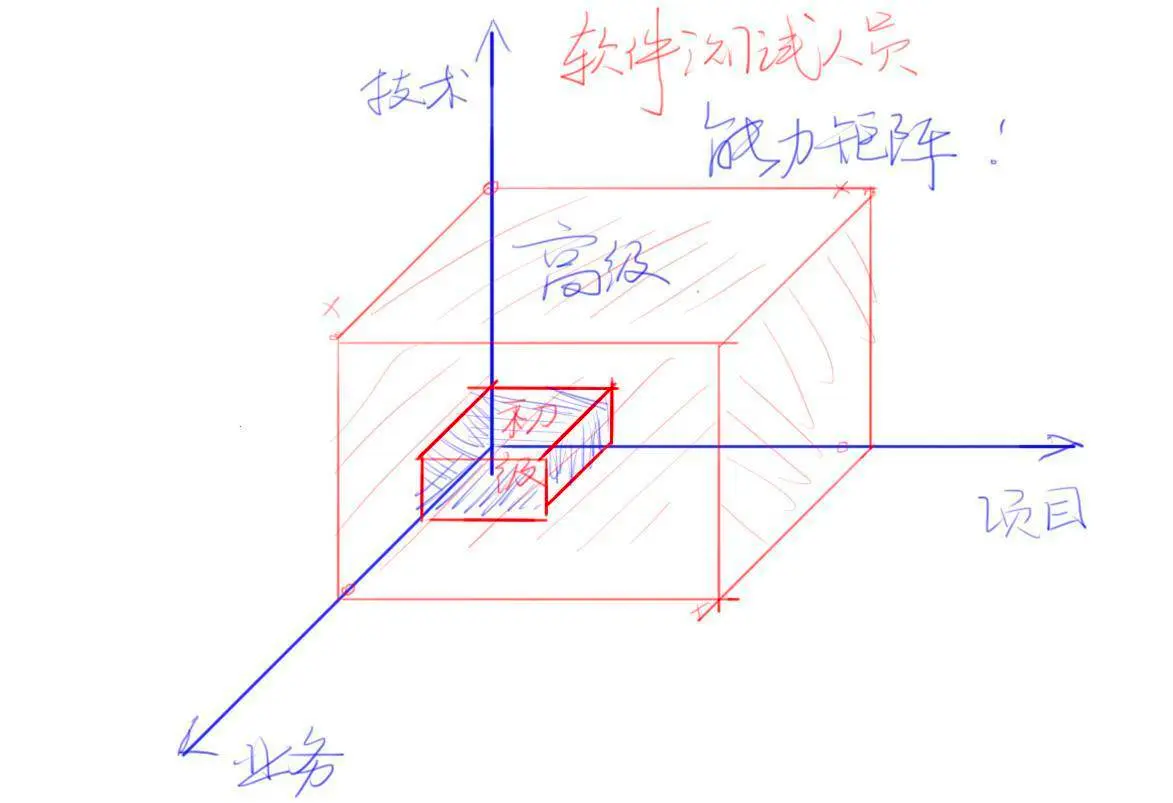 软件测试人员
技术
能力矩阵！
高级
初
级
项目
业务